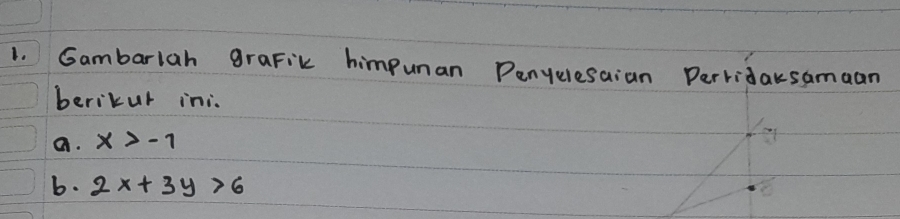 1. Gambarlah grafik himpunan Penyelesaian Pertidaksamaan
berikut ini.
a. x > -1
b. 2x + 3y > 6